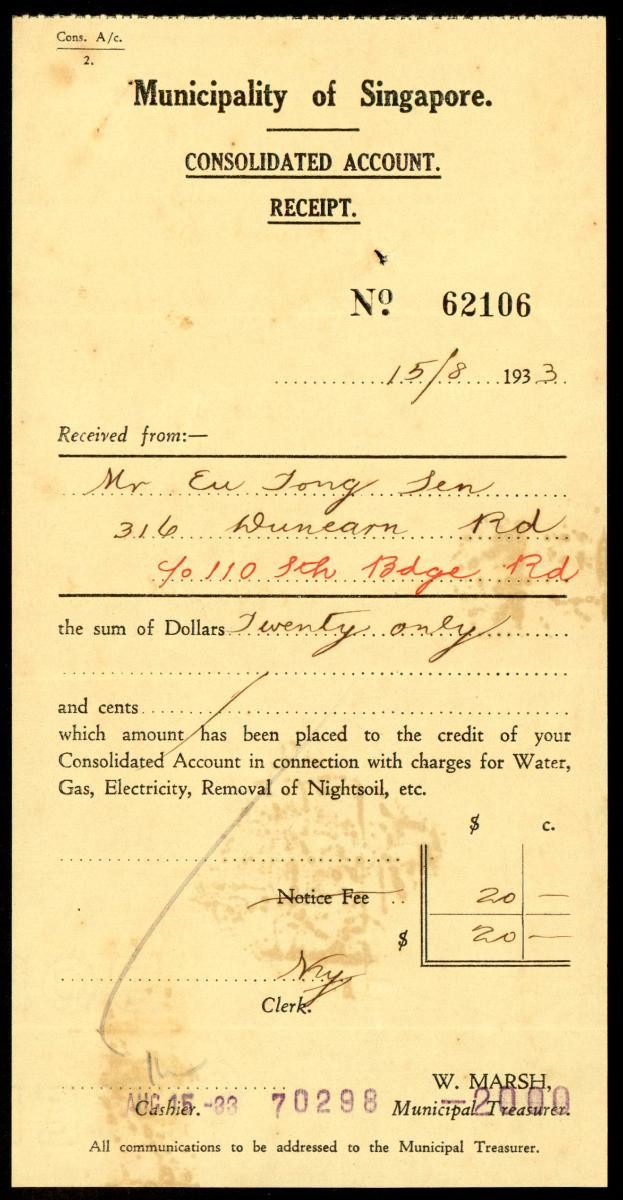 Cons. A/c.
2.
Municipality of Singapore.
CONSOLIDATED ACCOUNT.
RECEIPT.
No. 62106
15/8 1933
Received from:—
Mr Eu Tong Sen
316 Dunearn Rd
c/o 110 Sth Bdge Rd
the sum of Dollars Twenty only
and cents
which amount has been placed to the credit of your
Consolidated Account in connection with charges for Water,
Gas, Electricity, Removal of Nightsoil, etc.
$ c.
Notice Fee 20 —
$ 20 —
Clerk.
W. MARSH,
AUG 15 -33 70298 —2000
Cashier. Municipal Treasurer.
All communications to be addressed to the Municipal Treasurer.